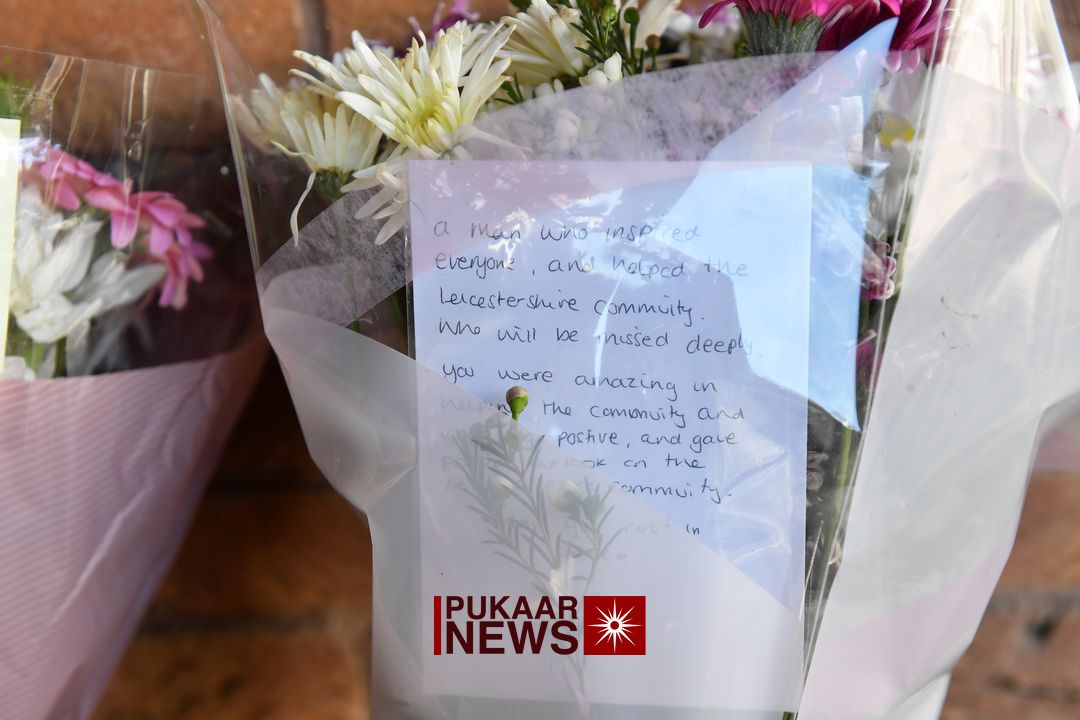 a man who inspired
everyone, and helped the
Leicestershire commuity.
Who will be missed deeply.
you were amazing in
helping the comonuity and
postive, and gave
outlook on the
commuity.
rest in
PUKAAR
NEWS